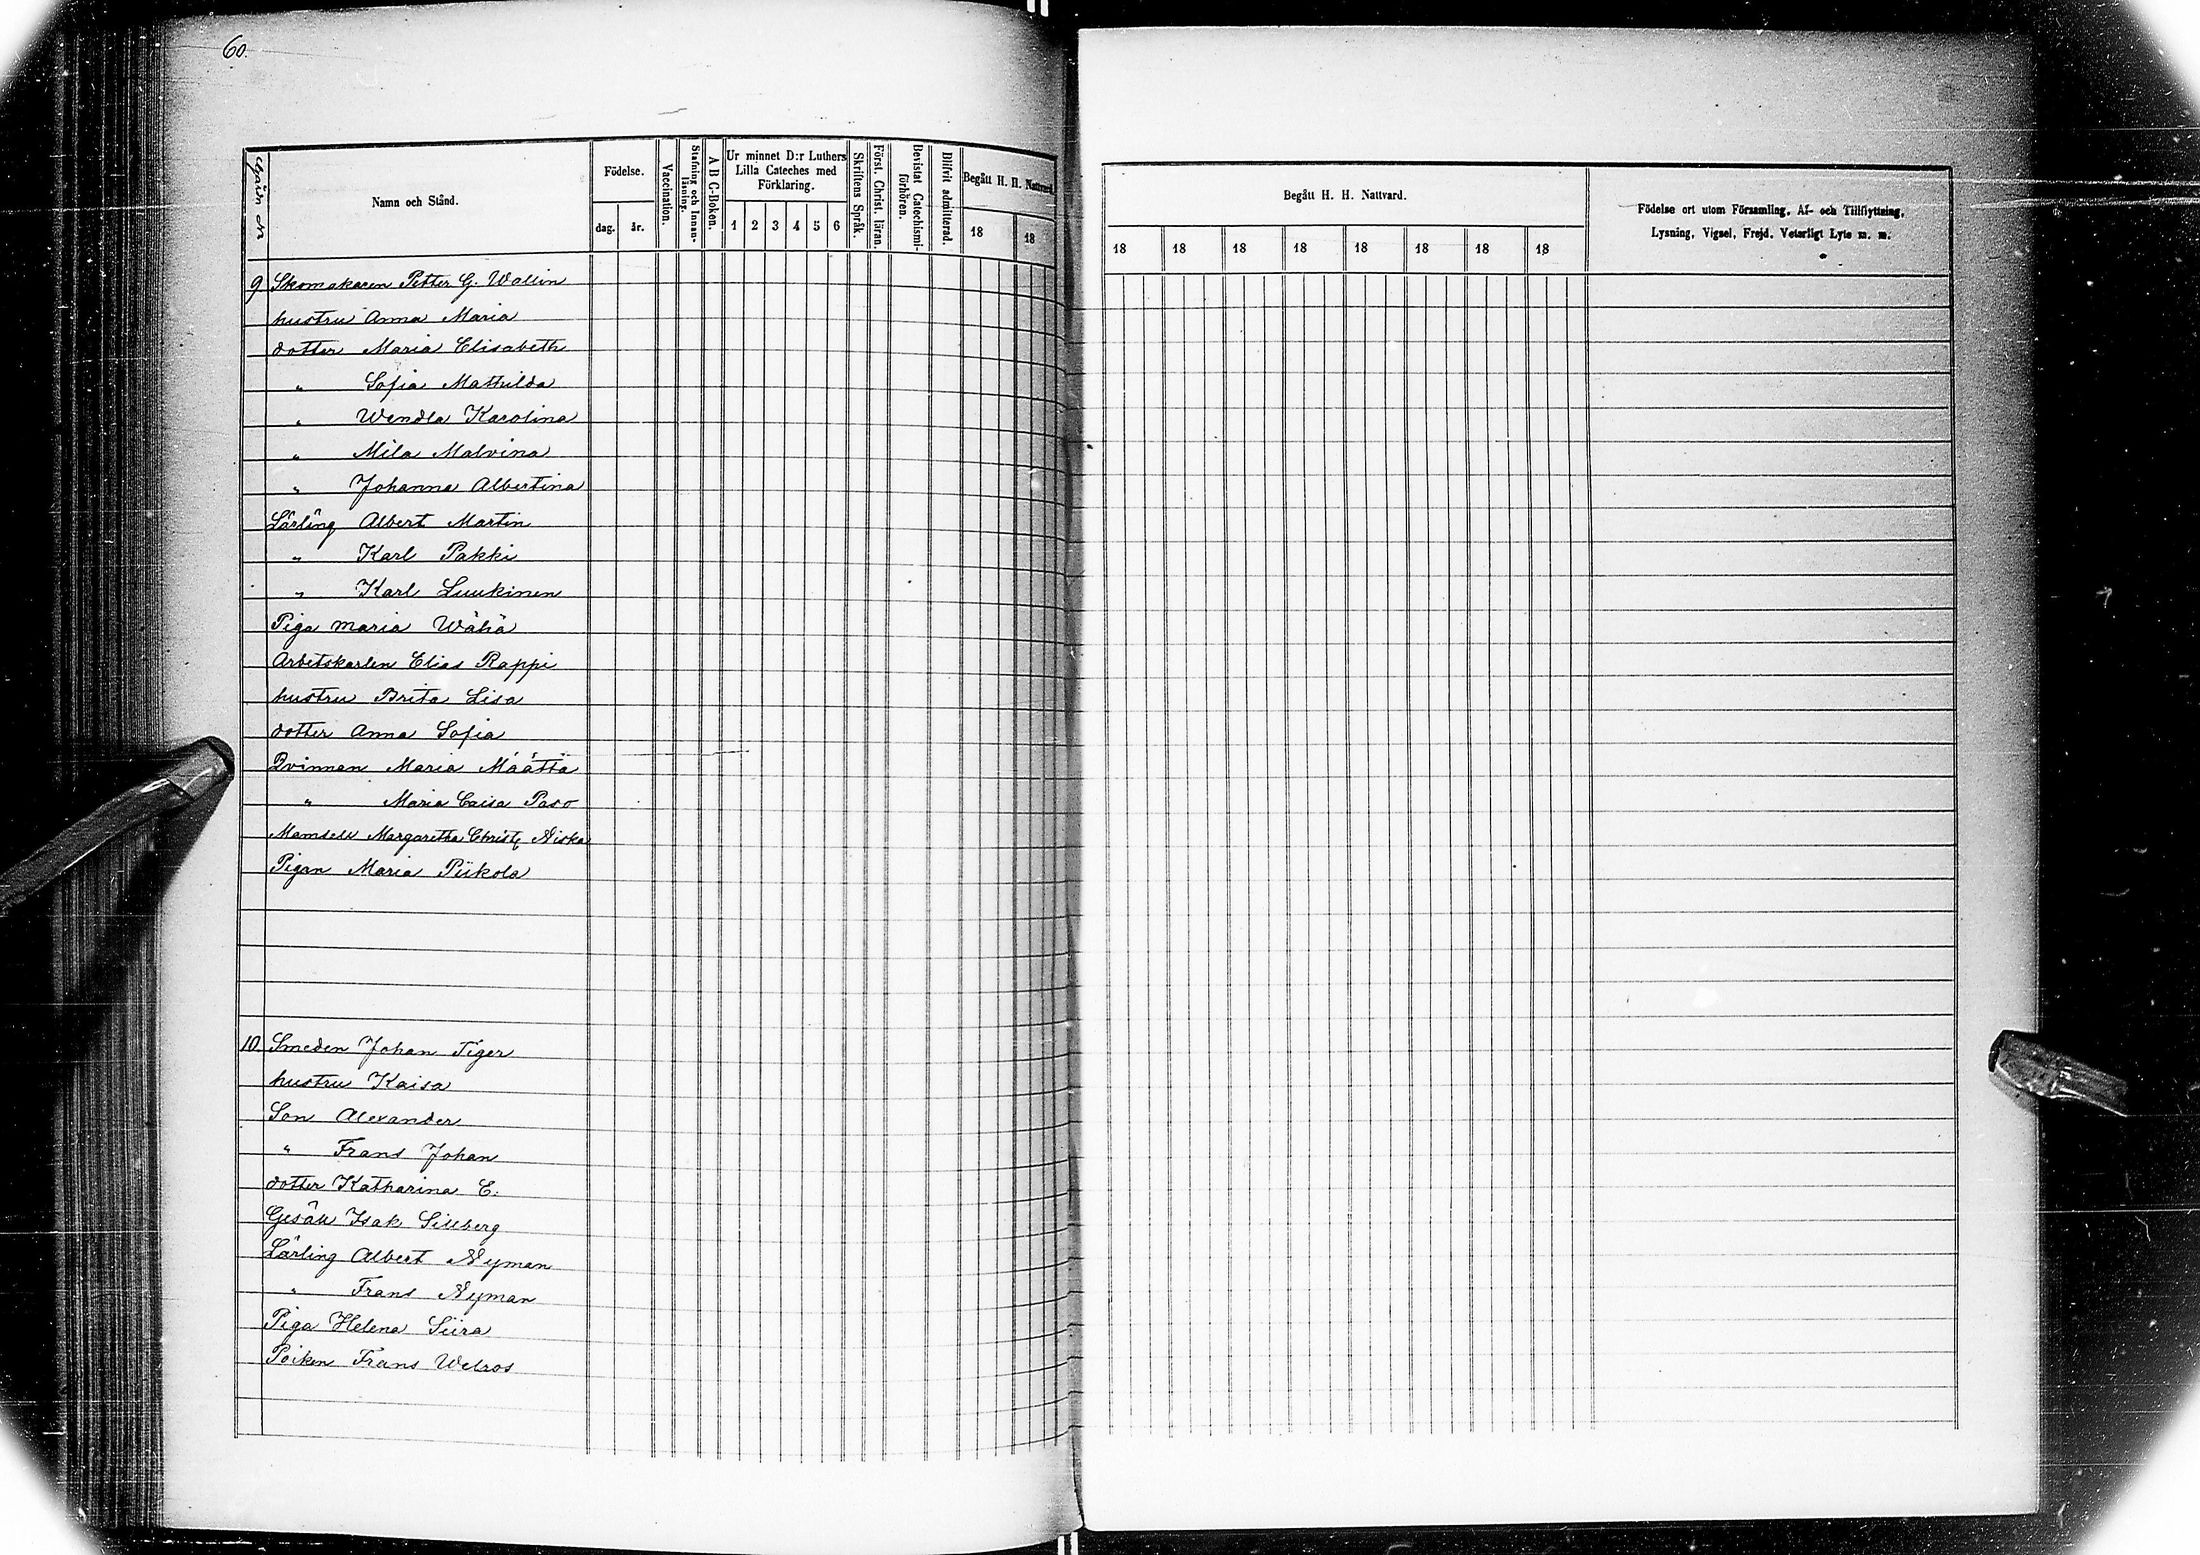 60.
Gård N
Namn och Stånd.
Födelse.
dag. år.
Vaccination.
Stafning och Innan-läsning.
A B C-Boken.
Ur minnet D:r Luthers
Lilla Cateches med
Förklaring.
1 2 3 4 5 6
Skriftens Språk.
Först. Christ. läran.
Bevistat Catechismi-förhören.
Blifvit admitterad.
Begått H. H. Nattvard.
18 18
9 Skomakaren Petter G. Wallin
hustru Anna Maria
dotter Maria Elisabeth
" Sofia Mathilda
" Wendla Karolina
" Mila Malvina
" Johanna Albertina
Lärling Albert Martin
" Karl Pakki
" Karl Luukinen
Piga Maria Wähä
Arbetskarlen Elias Rappi
hustru Brita Lisa
dotter Anna Sofia
Qvinnan Maria Määttä
" Maria Caisa Paso
Mamsell Margaretha Christ. Niska
Pigan Maria Piikola
10 Smeden Johan Tiger
hustru Kaisa
Son Alexander
" Frans Johan
dotter Katharina E.
Gesäll Isak Sillberg
Lärling Albert Nyman
" Frans Nyman
Piga Helena Siira
Poiken Frans Welros
Begått H. H. Nattvard.
18 18 18 18 18 18 18 18
Födelse ort utom Församling, Af- och Tillflyttning,
Lysning, Vigsel, Frejd. Veterligt Lyte m. m.